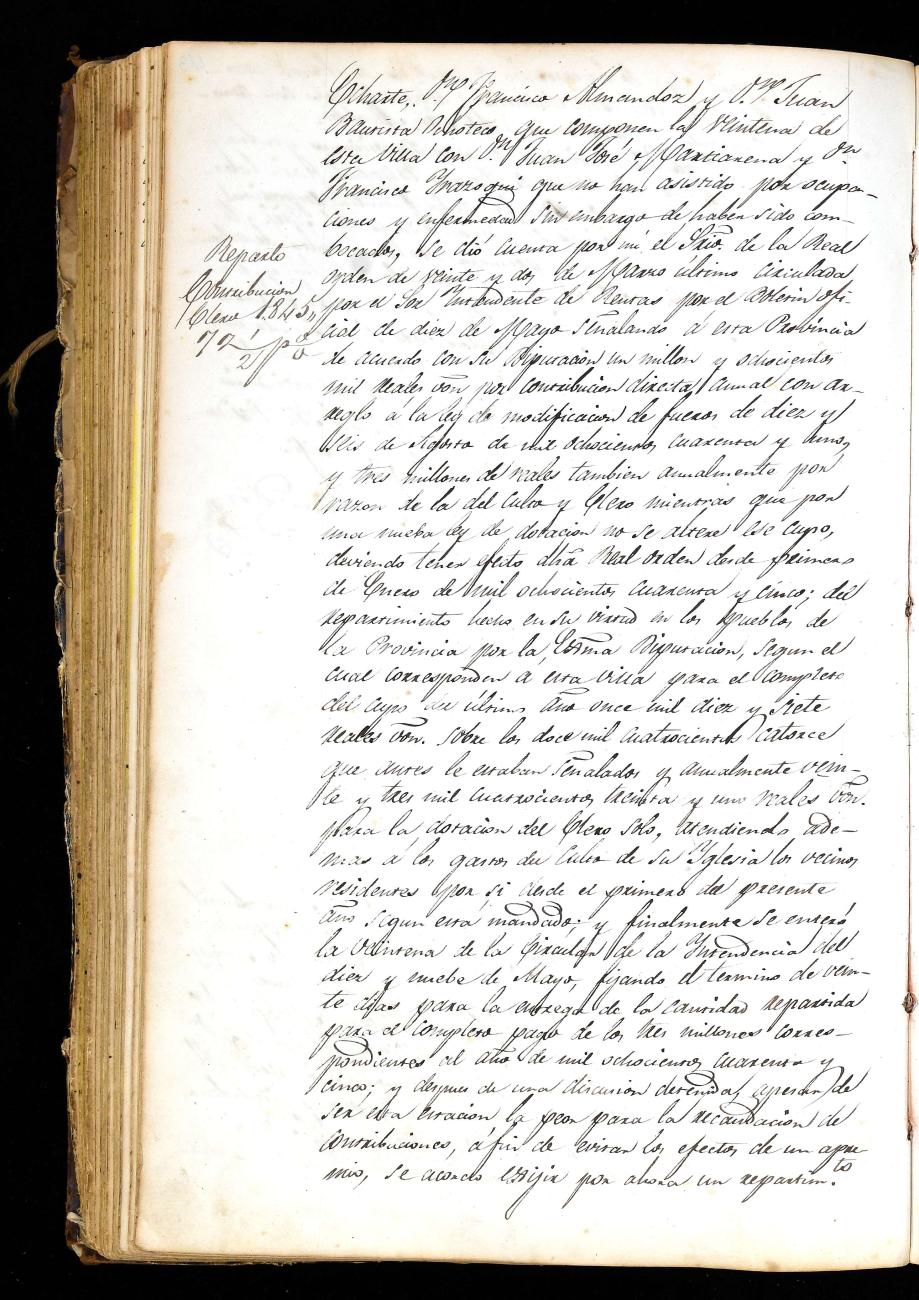 Ocharte, D.n Francisco Almandoz y D.n Juan
Bautista Ochoteco, que componen la veintena de
esta Villa con D.n Juan José Martiarena y D.n
Francisco Yrazoqui que no han asistido por ocupa-
ciones y enfermedad sin embargo de haber sido com-
bocados, se dió cuenta por mi el Srio. de la Real
orden de veinte y dos de Marzo último circulada
por el Sor Yntendente de Rentas por el Boletin ofi-
cial de diez de Mayo señalando á esta Provincia
de acuerdo con su Diputacion un millon y ochocientos
mil reales von por contribucion directa, anual con ar-
reglo a la ley de modificacion de fueros de diez y
seis de Agosto de mil ochocientos cuarenta y uno,
y tres millones de reales tambien anualmente por
razon de la del Culto y Clero mientras que por
una nueba ley de dotacion no se altere ese cupo,
deviendo tener efecto dha Real orden desde primero
de Enero de mil ochocientos cuarenta y cinco; del
repartimiento hecho en su virtud en los pueblos de
la Provincia por la Exma Diputacion, segun el
cual corresponden á esta villa para el completo
del cupo del último año once mil diez y siete
reales von. sobre los doce mil cuatrocientos catorce
que antes le estaban señalados y anualmente vein-
te y tres mil cuatrocientos treinta y uno reales von.
para la dotacion del Clero solo, atendiendo ade-
mas á los gastos del Culto de su Yglesia los vecinos
residentes por si desde el primero del presente
año segun está mandado; y finalmente se enteró
la Veintena de la Circular de la Yntendencia del
diez y nuebe de Mayo, fijando el termino de vein-
te dias para la entrega de la cantidad repartida
para el completo pago de los tres millones corres-
pondientes al año de mil ochocientos cuarenta y
cinco; y despues de una discusion detenida, apesar de
ser esta estacion la peor para la recaudacion de
contribuciones, á fin de evitar los efectos de un apre-
mio, se acordo exijir por ahora un repartim.to
Reparto
Contribucion
Clero 1845,,
72 1/2 p%